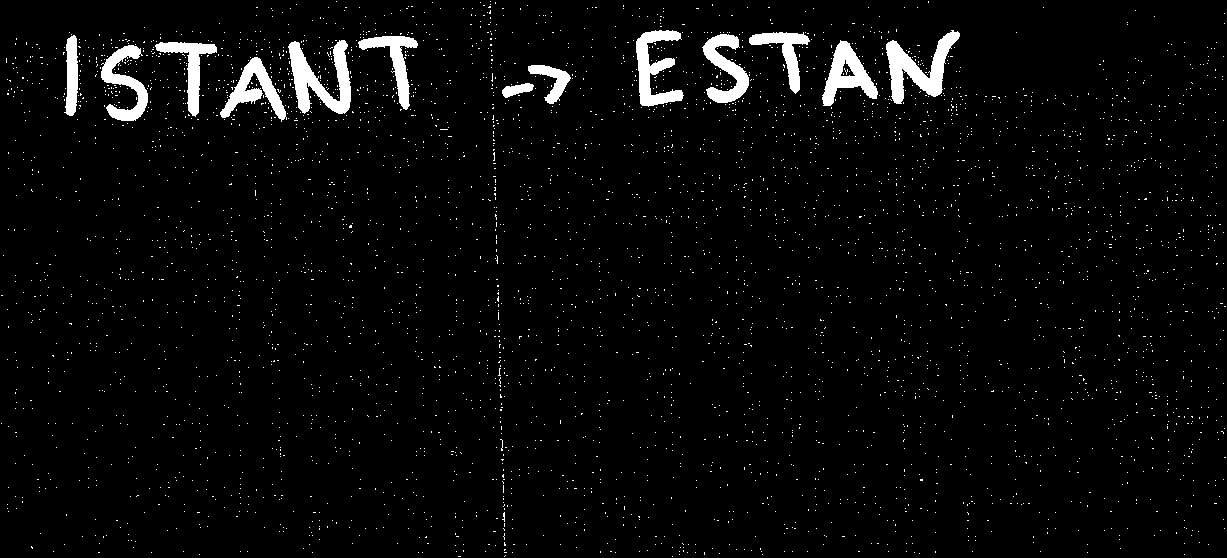 ISTANT → ESTAN